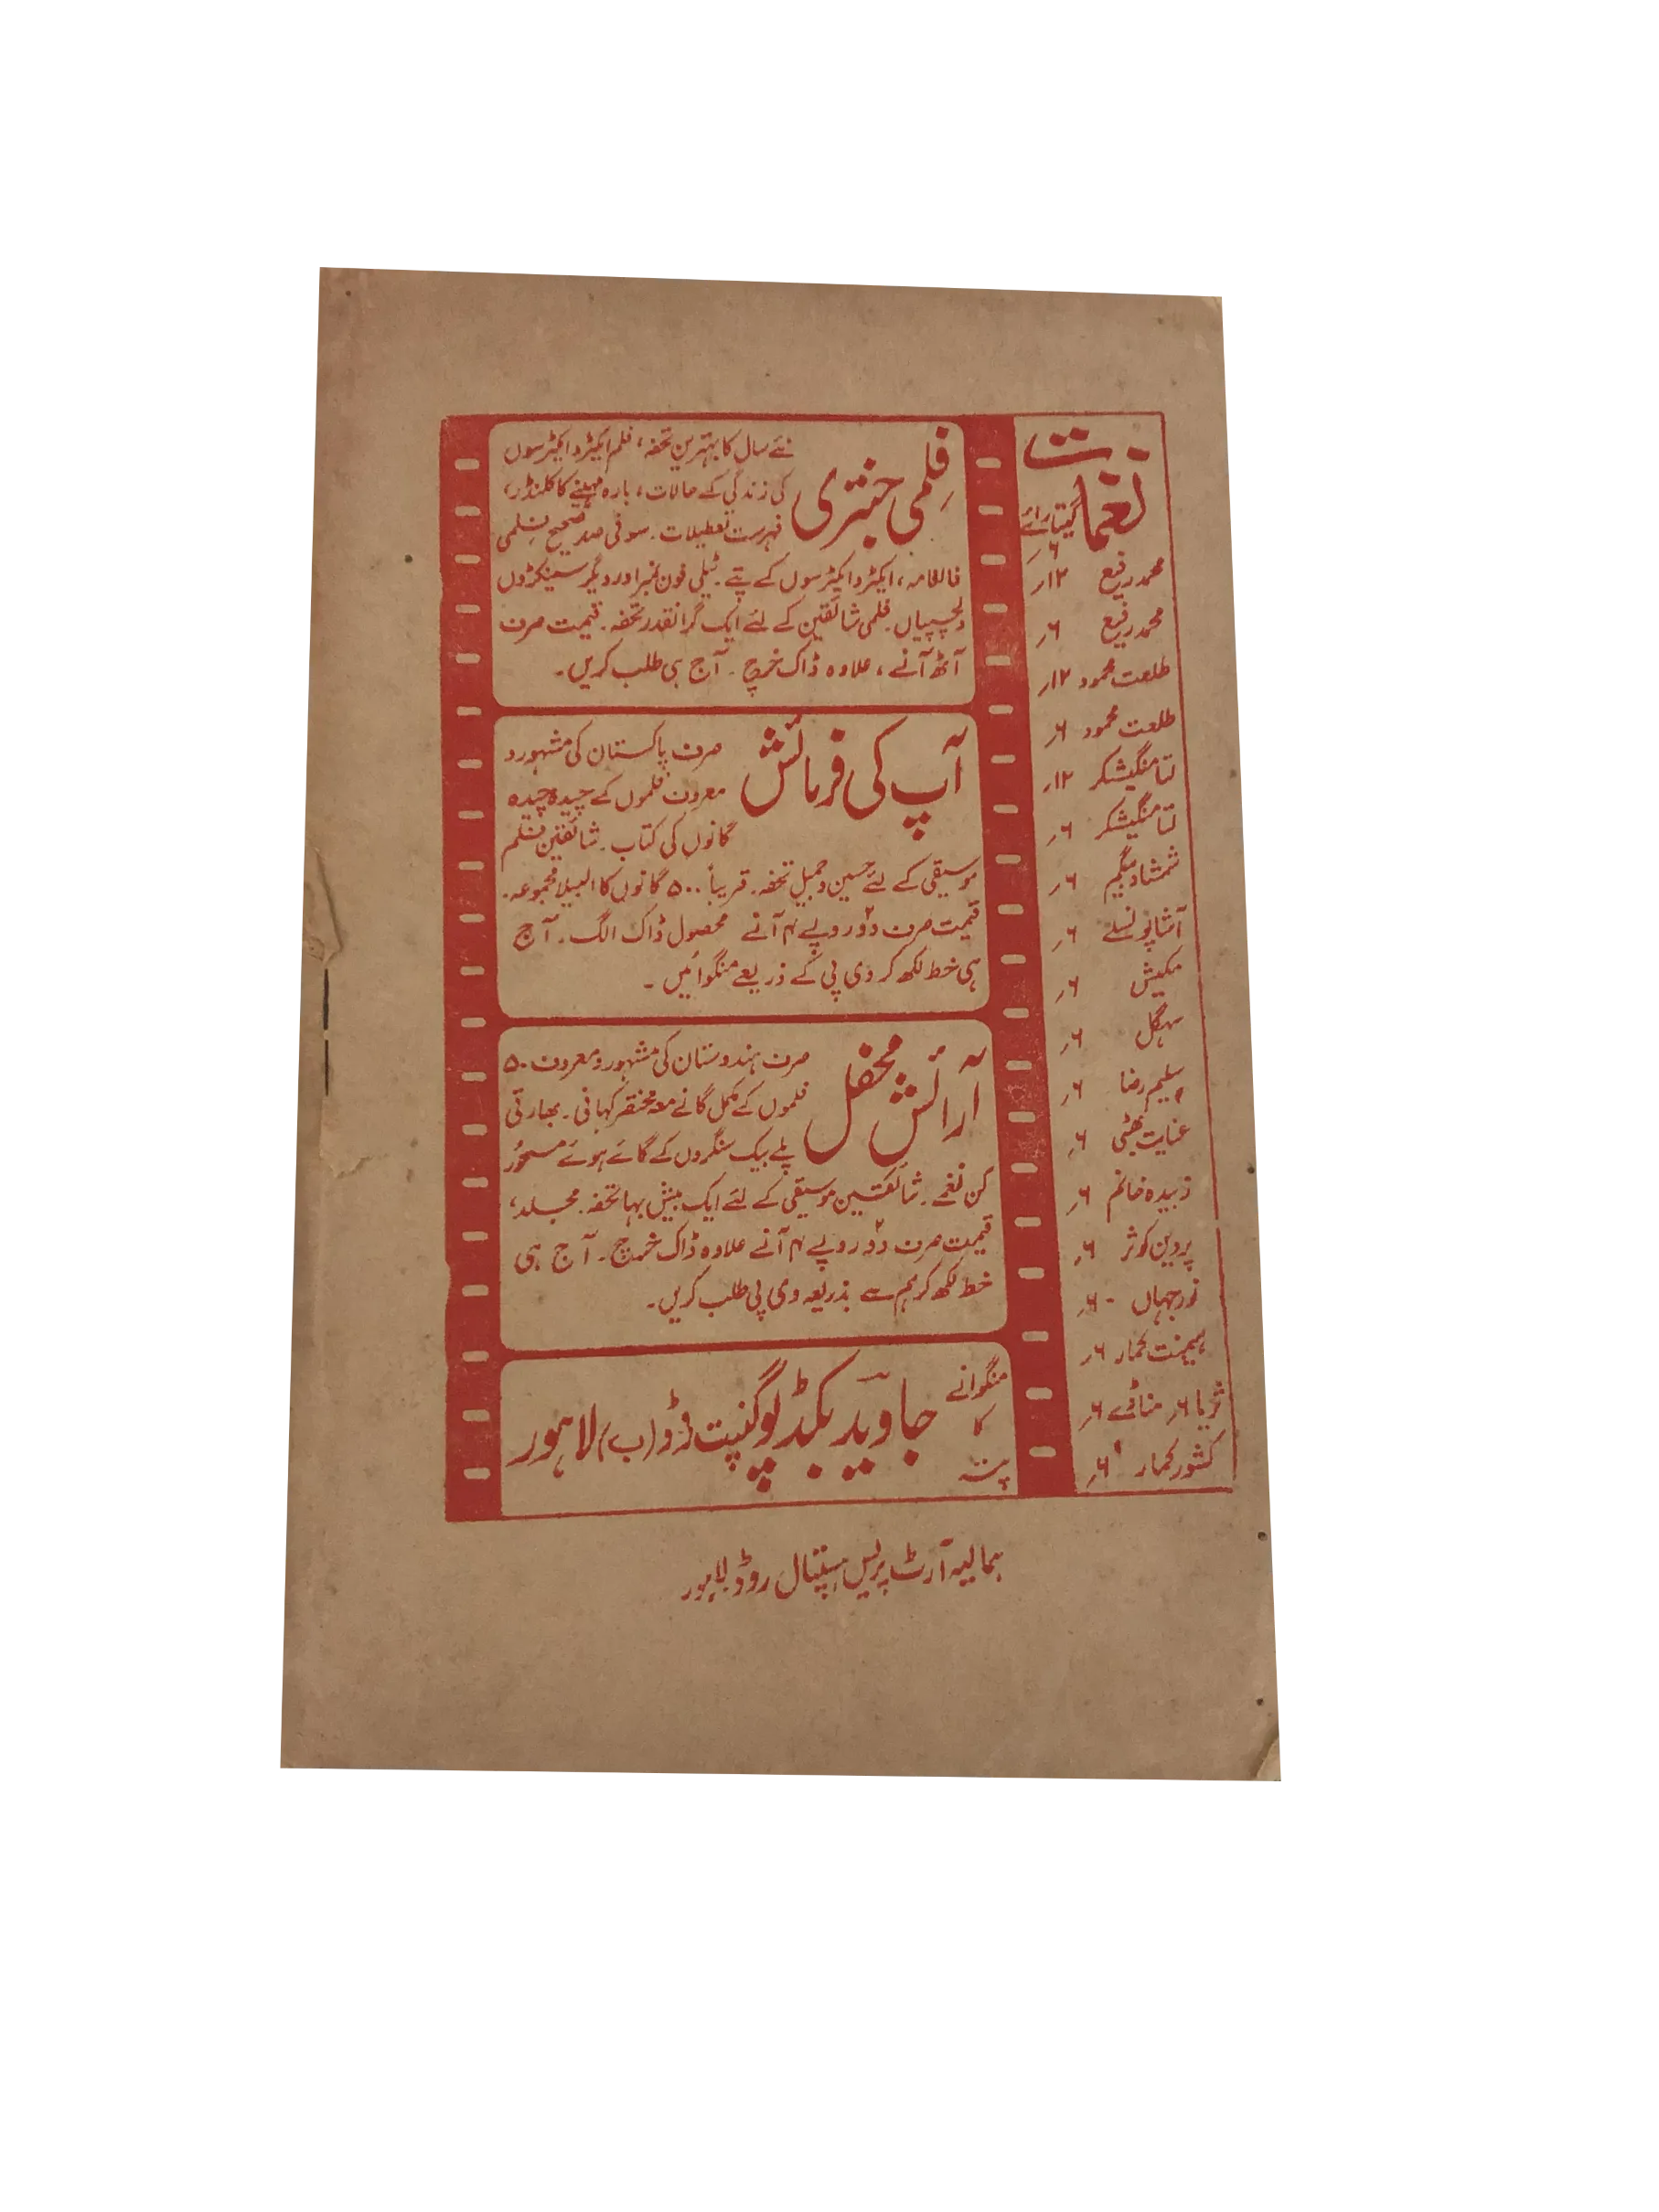 نغمات
گیتا رائے ۶ر
محمد رفیع ۱۲ر
محمد رفیع ۶ر
طلعت محمود ۱۲ر
طلعت محمود ۶ر
لتا منگیشکر ۱۲ر
لتا منگیشکر ۶ر
شمشاد بیگم ۶ر
آشا بھونسلے ۶ر
مکیش ۶ر
سہگل ۶ر
سلیم رضا ۶ر
عنایت بھٹی ۶ر
زبیدہ خانم ۶ر
پروین کوثر ۶ر
نور جہاں ۶ر
ہیمنت کمار ۶ر
ثریا ۶ر مناڈے ۶ر
کشور کمار ۶ر
فلمی جنتری
نئے سال کا بہترین تحفہ، فلم ایکٹر و ایکٹرسوں
کی زندگی کے حالات، بارہ مہینے کا کلنڈر،
فہرست تعطیلات۔ سو فی صد صحیح فلمی
فالنامہ، ایکٹر و ایکٹرسوں کے پتے۔ ٹیلی فون نمبر اور دیگر سینکڑوں
دلچسپیاں۔ فلمی شائقین کے لئے ایک گرانقدر تحفہ۔ قیمت صرف
آٹھ آنے، علاوہ ڈاک خرچ۔ آج ہی طلب کریں۔
آپ کی فرمائش
صرف پاکستان کی مشہور و
معروف فلموں کے چیدہ چیدہ
گانوں کی کتاب۔ شائقین فلم
موسیقی کے لئے حسین و جمیل تحفہ۔ قریباً ۵۰۰ گانوں کا البیلا مجموعہ۔
قیمت صرف دو ۲ روپے ۴ آنے محصول ڈاک الگ۔ آج
ہی خط لکھ کر وی پی کے ذریعے منگوائیں۔
آرائش محفل
صرف ہندوستان کی مشہور و معروف ۵۰
فلموں کے مکمل گانے معہ مختصر کہانی۔ بھارتی
پلے بیک سنگروں کے گائے ہوئے مسحور
کن نغمے۔ شائقین موسیقی کے لئے ایک بیش بہا تحفہ۔ مجلد،
قیمت صرف دو ۲ روپے ۴ آنے علاوہ ڈاک خرچ۔ آج ہی
خط لکھ کر ہم سے بذریعہ وی پی طلب کریں۔
منگوانے کا پتہ
جاوید بکڈپو گنپت روڈ (ب) لاہور
ہمالیہ آرٹ پریس ہسپتال روڈ لاہور